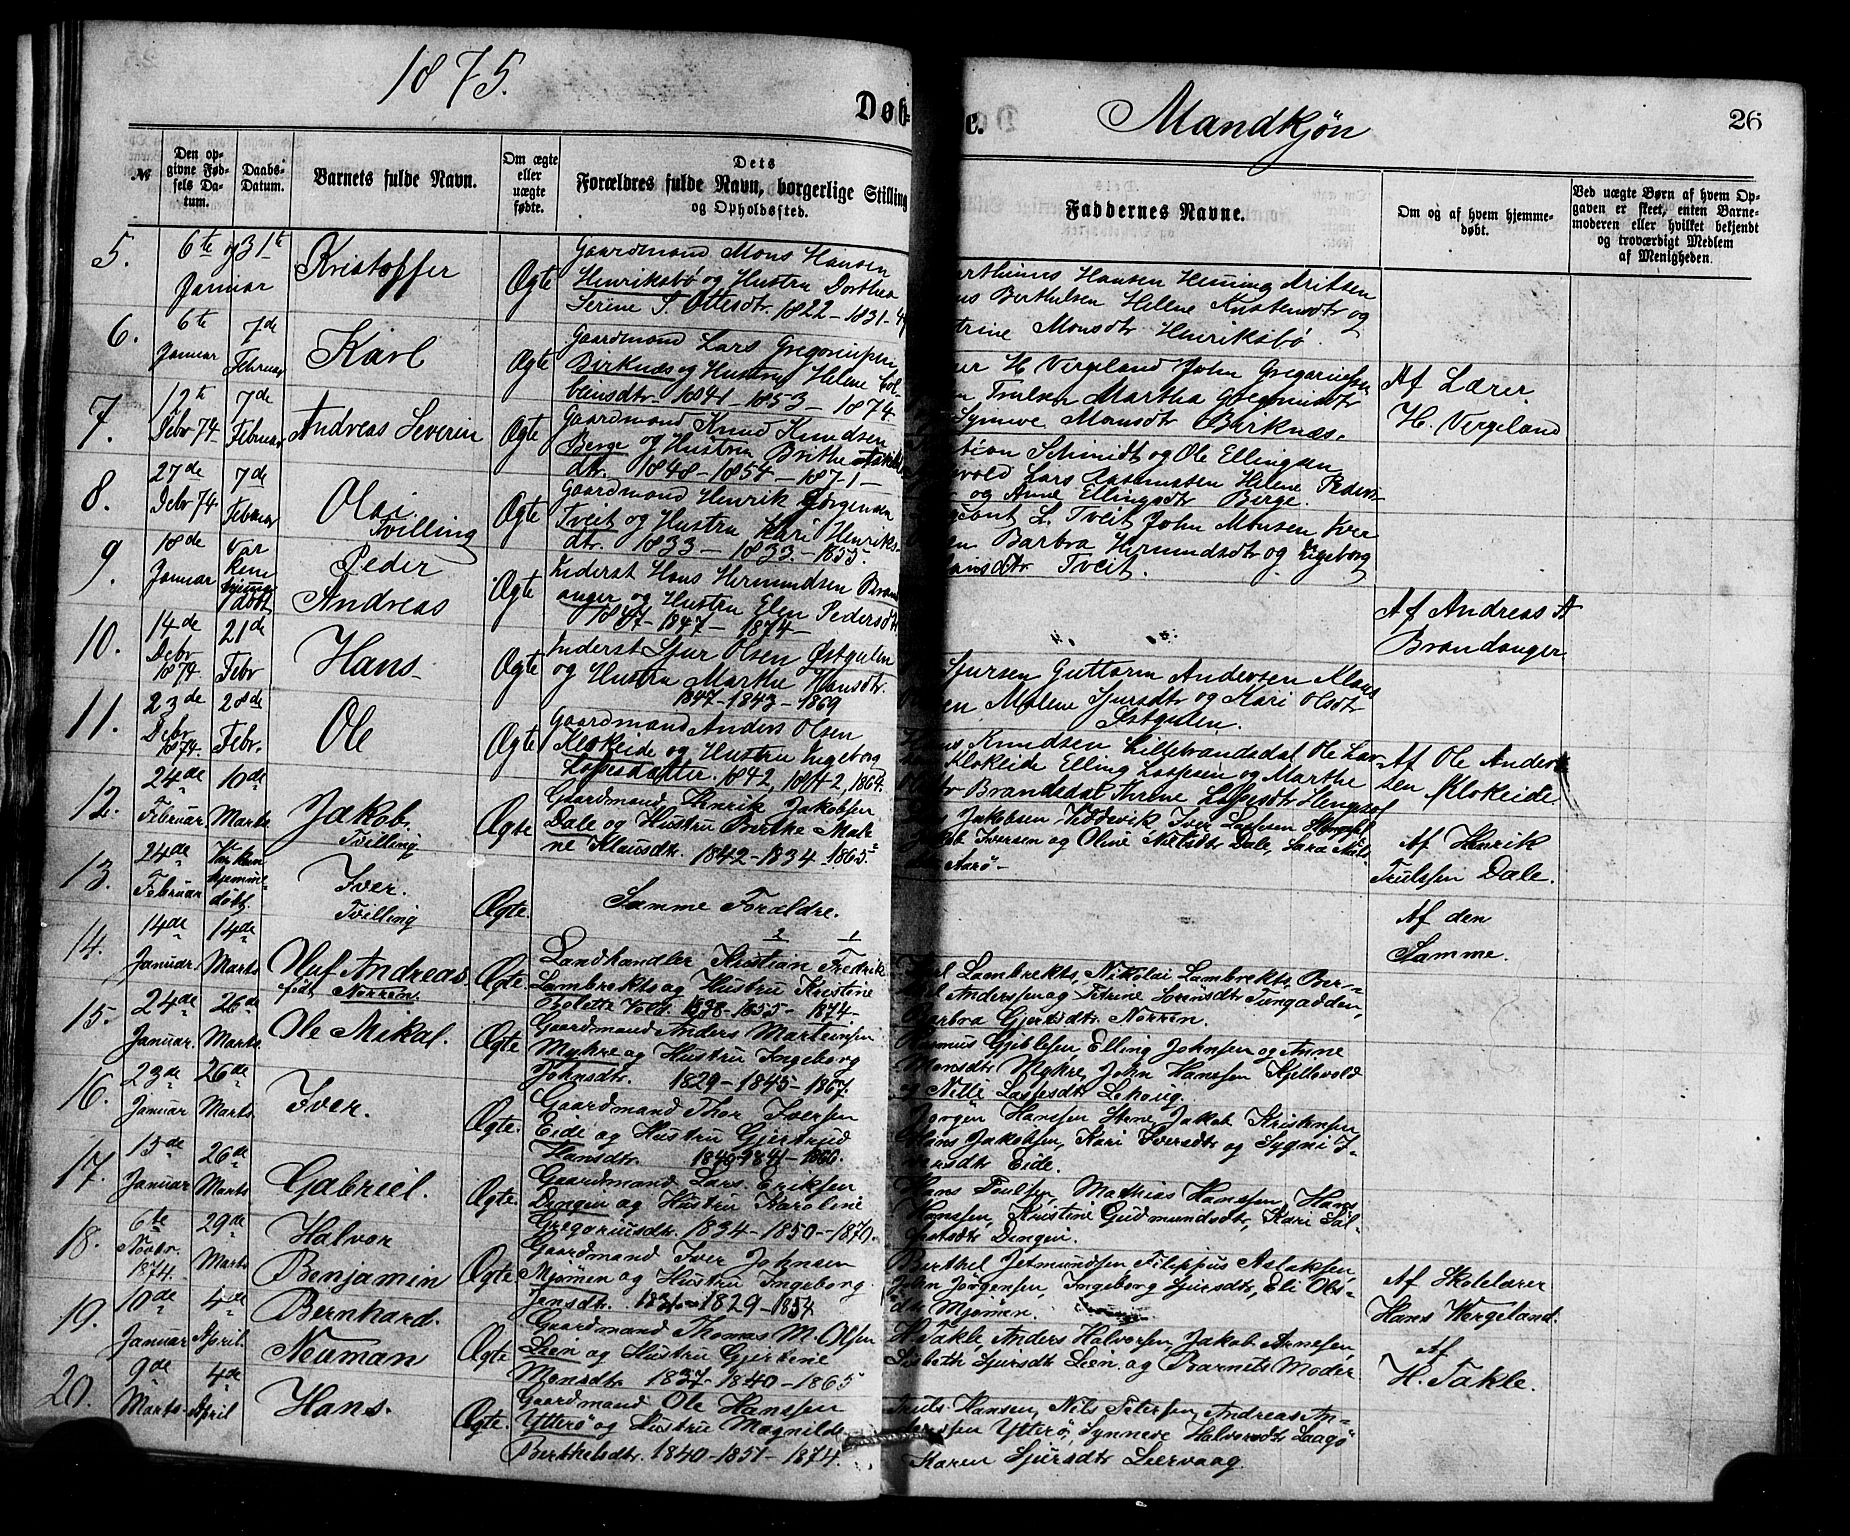 1875.
Døb-
e.
Mandkjøn
26
№
Den opgivne Fødsels Datum.
Daabs-Datum.
Barnets fulde Navn.
Om ægte eller uægte fødte.
Dets Forældres fulde Navn, borgerlige Stilling og Opholdssted.
Faddernes Navne.
Om og af hvem hjemmedøbt.
Ved uægte Børn af hvem Opgaven er skeet, enten Barnemoderen eller hvilket bekjendt og troværdigt Medlem af Menigheden.
5. 6te og 31te Januar
Kristoffer
Ægte
Gaardmand Mons Hansen
Henriksbø og Hustru Dorthea
Serine S. Ottesdtr. 1822-1831-4
Hansen Heming
Berthelsen Helene og
trine Monsdtr Henriksbø.
6. 6te Januar 7de Februar
Karl
Ægte
Gaardmand Lars Gregoriussen
Birknæs og Hustru Helene Col-
bansdtr. 1841-1853-1874.
H Vergeland John Gregoriussen
Trulsen Martha Gregoriusdtr
Synneve Monsdtr Birknæs.
Af Lærer
H. Vergeland
7. 12te Debr 74 7de Februar
Andreas Severin
Ægte
Gaardmand Knud Knudsen
Berge og Hustru Brithe
dtr. 1848-1854-1871-
Schmidt og Ole Ellingsen
Lars Rasmussen Helene Peders-
og Anne Ellingsdtr Berge.
8. 27de Debr 74 7de Februar
Olai
Tvilling
Ægte
Gaardmand Henrik Jørgensen
Tveit og Hustru Kari Henriks-
dtr. 1833-1833-1855.
L. Tveit John Monsen Iver
Barbra Hermundsdtr og Ingeborg
Hansdtr Tveit.
9. 18de Januar Var kun hjemmedøbt
Peder
Andreas
Ægte
Inderst Hans Hermundsen Brand-
anger og Hustru Elen Pedersdtr
1847-1847-1874-
" "
Af Andreas A
Brandanger
10. 14de Debr 1874. 21de Febr
Hans
Ægte
Inderst Sjur Olsen Østgulen
og Hustru Marthe Hansdtr.
1847-1843-1869
Sjursen Guttorm Andersen Klaus
Malene Sjursdtr og Kari Olsdtr
Østgulen.
11. 23de Debr 1874. 28de Febr.
Ole
Ægte
Gaardmand Anders Olsen
Klokeide og Hustru Ingeborg
Lassesdatter. 1842, 1842, 1864.
Knudsen Lillebrandsdal Ole Lar-
Klokeide Elling Lassesen og Marthe
Brandsdal Thrine Lassesdtr
Af Ole Ander-
sen Klokeide
12. 24de Februar. 10de Marts
Jakob.
Tvilling
Ægte
Gaardmand Henrik Jakobsen
Dale og Hustru Berthe Male-
ne Klausdtr. 1842-1834-1865-
Jakobsen Iver Lassesen
Iversen og Oline Nielsdtr Dale, Sara Niels-
Aarø-
Af Henrik
Trulssen Dale.
13. 24de Februar Var kun hjemmedøbt
Iver.
Tvilling
Ægte.
Samme Forældre.
Af den
Samme.
14. 14de Januar. 14de Marts
Oluf Andreas
født Norren
Ægte.
2 1
Landhandler Kristian Fredrik
Lambrekts og Hustru Kristine
Bolette Vold. 1838-1855-1874-
Lambrekts, Nikolai Lambrekts, Ber-
Anderssen og Petrine Tungodden,
Barbra Gjertsdtr Norren.
15. 24de Januar. 26de Marts.
Ole Mikal.
Ægte
Gaardmand Anders Marteinsen
Myhre og Hustru Ingeborg
Johnsdtr. 1829-1845-1867.
Rasmus Gjiblesen, Elling Johnsen og Anne
Monsdtr Myhre, John Hanssen Kjellevold
og Nille Lassesdtr Lehoug.
16. 23de Januar 26de Marts
Iver.
Ægte.
Gaardmand Thor Iversen
Eide og Hustru Gjertrud
Hansdtr. 1840-1841-1860.
Jørgen Hanssen Stene, Jakob Kristensen,
Hans Jakobsen, Kari Iversdtr og Sygni I-
versdtr Eide.
17. 15de Januar 26de Marts
Gabriel.
Ægte
Gaardmand Lars Eriksen
Dingen og Hustru Karoline
Gregoriusdtr. 1834-1850-1870.
Hans Poulsen, Mathias Hanssen, Hans
Hanssen, Kristine Gudmundsdtr, Kari
Dingen.
18. 6te Novbr. 1874. 29de Marts
Halvor
Benjamin
Ægte
Gaardmand Iver Johnsen
Mjømen og Hustru Ingeborg
Jensdtr. 1829-1854
Berthel Jetmundsen, Filippus Aslaksen,
John Jørgensen, Ingeborg Sjursdtr, Eli Ols-
dtr Mjømen.
Af Skolelærer
Hans Wergeland.
19. 10de Januar 4de April.
Bernhard.
Neuman
Ægte
Gaardmand Thomas M. Olsen
Leen og Hustru Gjertine
Monsdtr. 1837-1840-1865
H. Takle, Anders Halvorsen, Jakob Arnesen,
Lisbeth Sjursdtr Leen og Barnets Moder
Af
H. Takle.
20. 9de Marts 4de April
Hans.
Ægte.
Gaardmand Ole Hanssen
Ytterø og Hustru Magnilde
Berthelsdtr. 1840-1851-1874.
Truls Hansen, Nils Petersen, Andreas An-
dersen Ytterø, Synneve Halvorsdtr Laagø
Karen Sjursdtr Leervaag.